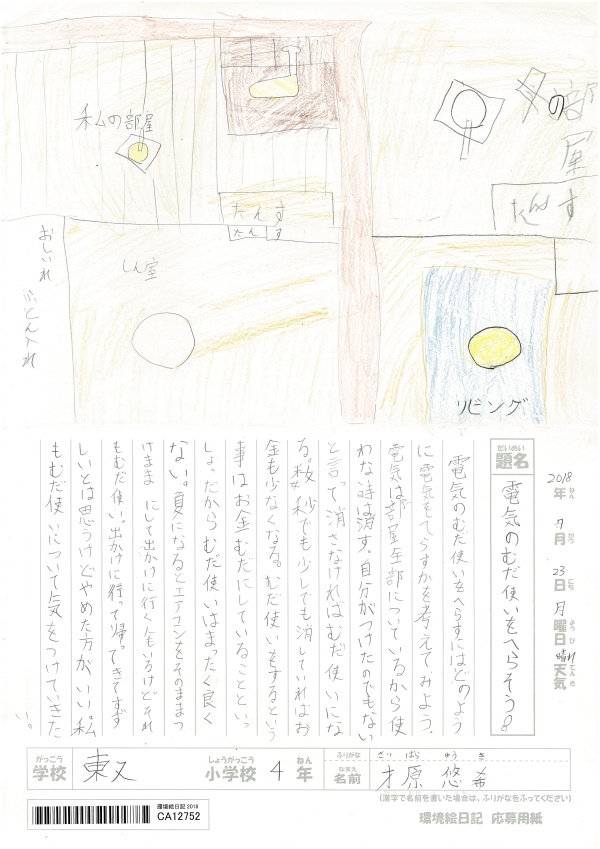 私の部屋
たんす
たんす
しん室
おしいれ
ふとん入れ
の部屋
たんす
リビング
だいめい
題名
電気のむだ使いをへらそう
2018年 7月 23日 月曜日 晴れ 天気
ねん がつ にち ようび てんき
電気のむだ使いをへらすにはどのよう
に電気をへらすかを考えてみよう。
電気は部屋全部についているから使
わない時は消す。自分がつけたのでもない
と言って消さなければむだ使いにな
る。数秒でも少しでも消していればお
金も少なくなる。むだ使いをするという
事はお金むだにしていることといっ
しょ。だからむだ使いはまったく良く
ない。夏になるとエアコンをそのままつ
けまま にして出かけに行く人もいるけどそれ
もむだ使い。出かけに行って帰ってきてすず
しいとは思うけどやめた方がいい。私
もむだ使いについて気をつけていきた
い。
がっこう
学校
東又
しょうがっこう
小学校
4
ねん
年
ふりがな
さい ばら ゆう き
なまえ
名前
才原 悠希
(漢字で名前を書いた場合は、ふりがなをふってください)
環境絵日記 2018
CA12752
環境絵日記 応募用紙